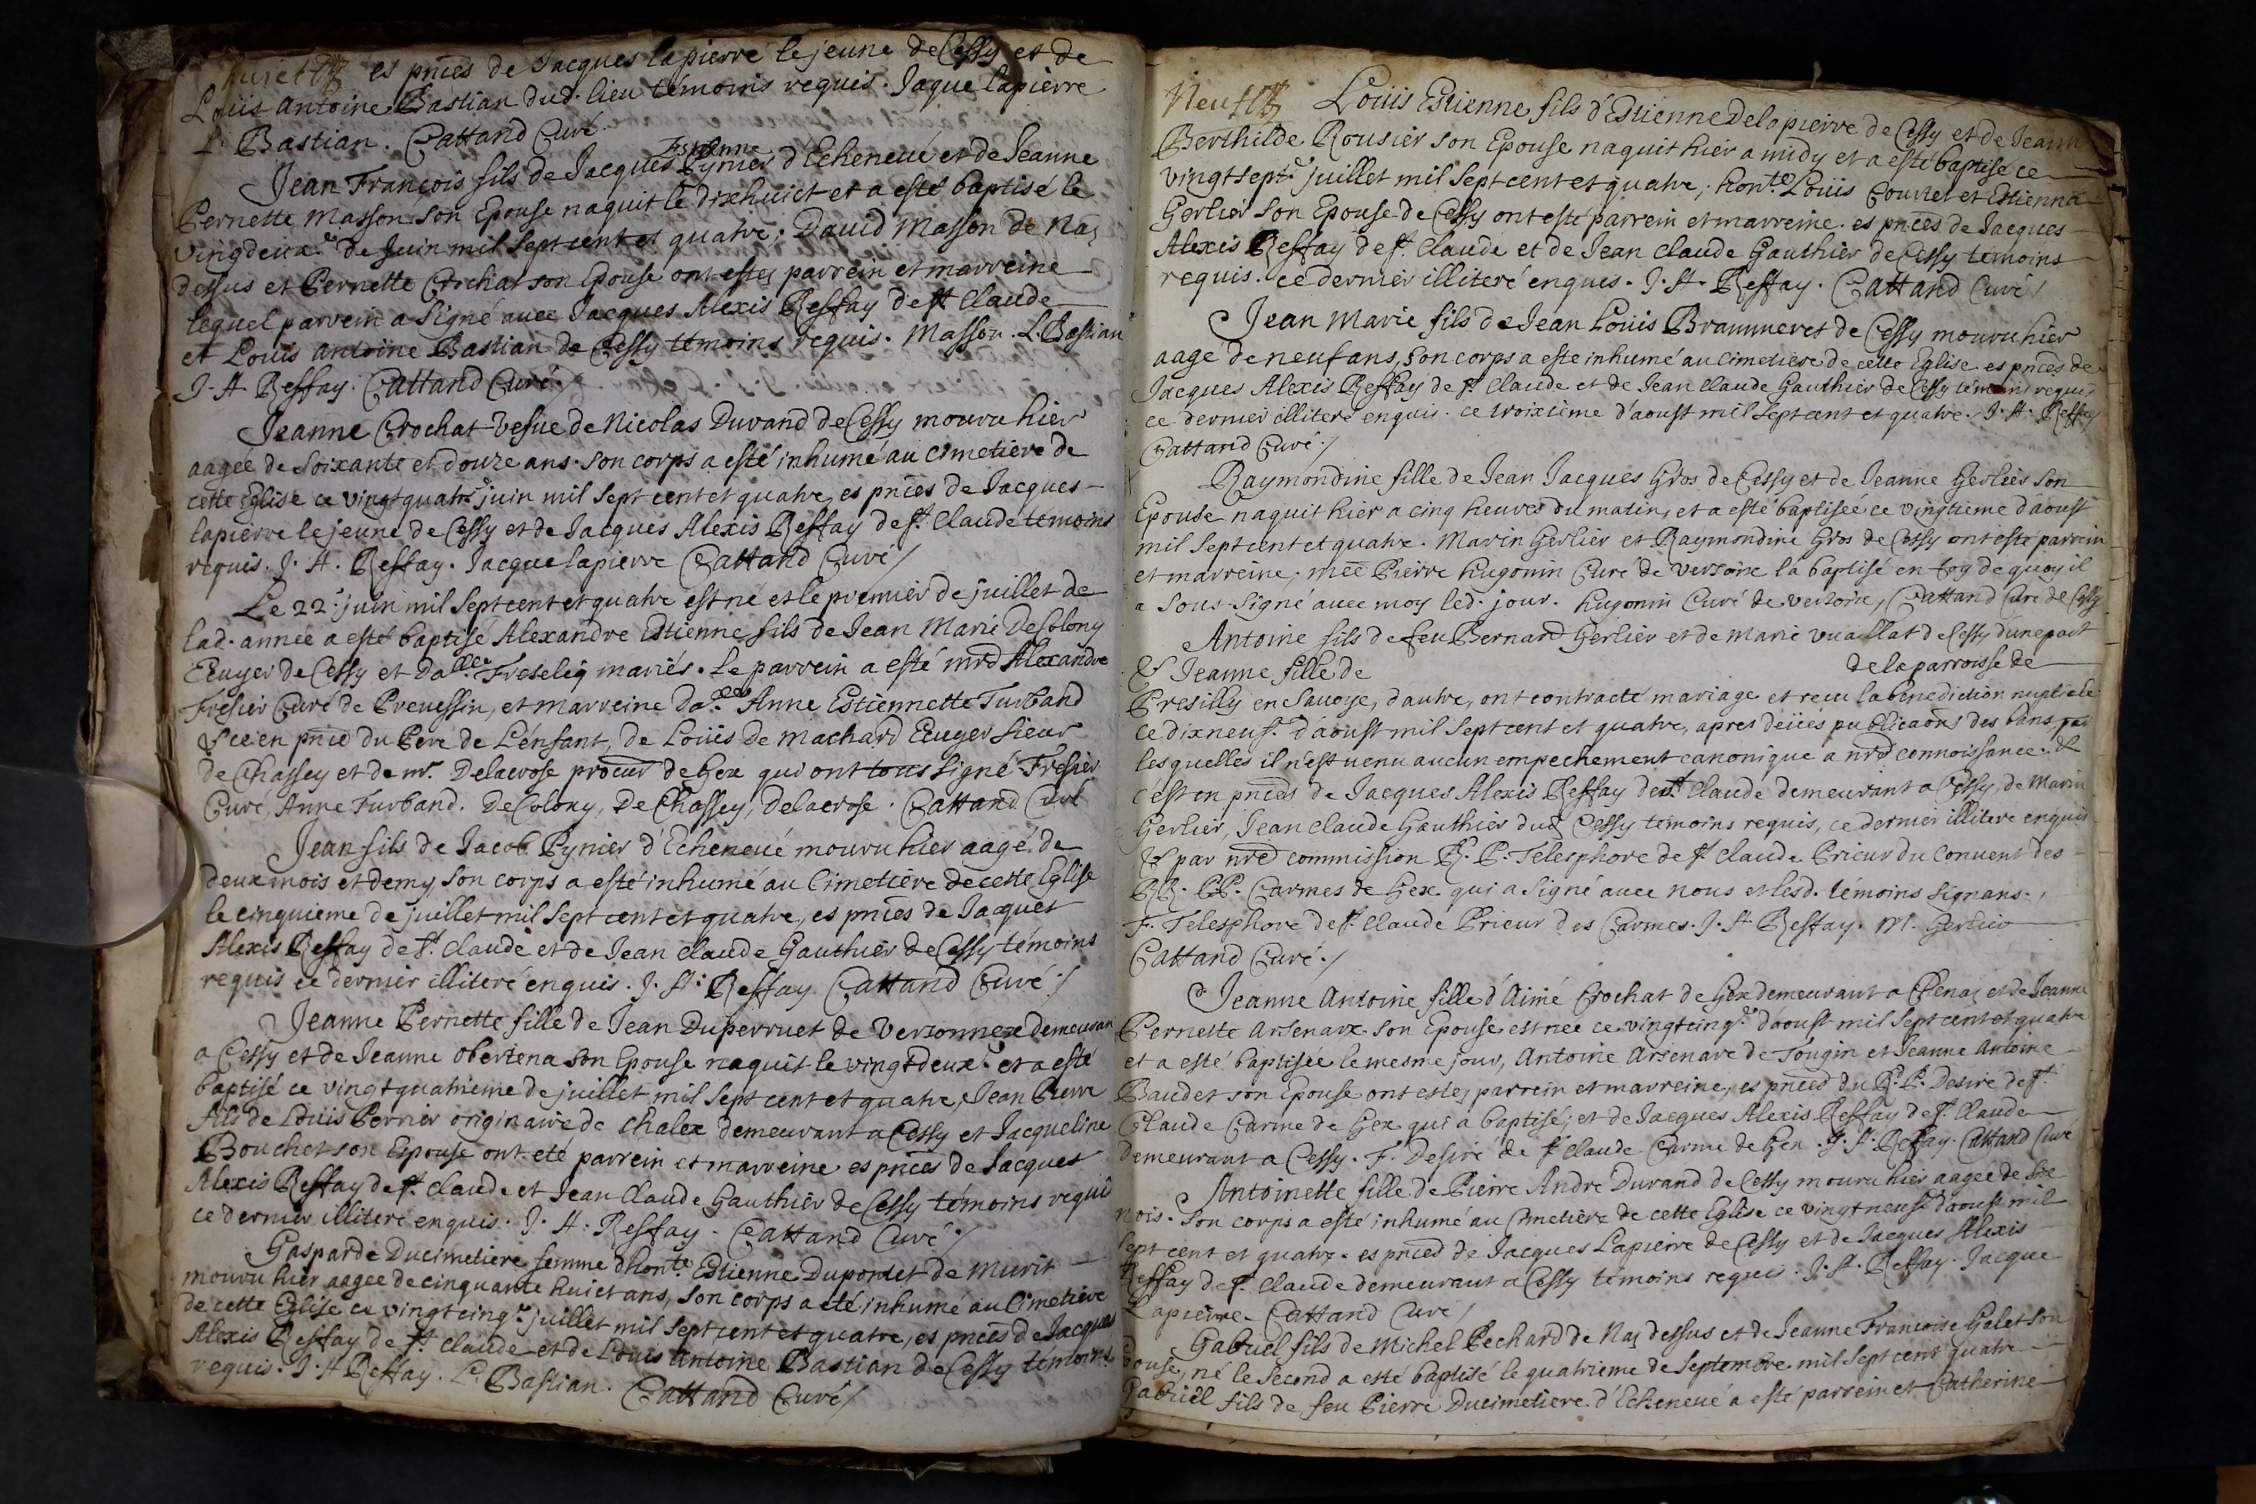 huict es pnces de Jacques lapierre le jeune de Cessy et de
Loüis Antoine Bastian dud. lieu témoins requis. Jaque lapierre
L. Bastian. Cattand Curé.
Estienne
Jean François fils de Jacques Pynier d'Echeneué et de Jeanne
Pernette Masson son Epouse naquit le dixhuict et a esté baptisé le
vingdeux.e de Juin mil sept cent et quatre; David Masson de Naz
dessus et Pernette Crochat son Epouse ont estez parrein et marreine
lequel parrein a signé avec Jacques Alexis Reffay de st Claude
et Louis Antoine Bastian de Cessy témoins requis. Masson. L. Bastian
J. A. Reffay. Cattand Curé./
Jeanne Crochat vefue de Nicolas Durand de Cessy mouru hier
aagée de soixante et douze ans. son corps a esté inhumé au Cimetiere de
cette Eglise ce vingtquatre juin mil sept cent et quatre, es pnces de Jacques
lapierre le jeune de Cessy et de Jacques Alexis Reffay de st. Claude temoins
requis. J. A. Reffay. Jacque lapierre Cattand Curé/
Le 22.e juin mil sept cent et quatre est né et le premier de juillet de
lad. année a esté baptisé Alexandre Estienne fils de Jean Marie De Colony
Ecuyer de Cessy et Dalle. Freseleq mariés. Le parrein a esté mre Alexandre
Fresier Curé de Prevessin, et marreine Dalle. Anne Estiennette Turband
& ce en pnce du Pere de L'enfant, de Loüis de Machard Ecuyer sieur
de Chassey et de mr. Delacrose procur de Gex qui ont tous signé Fresier
Curé, Anne Turband. DeColony, De Chassey, Delacrose. Cattand Curé
Jean fils de Jacob Pynier d'Echeneué mouru hier aagé de
deux mois et demy, son corps a esté inhumé au Cimetiere de cette Eglise
le cinquieme de juillet mil sept cent et quatre, es pnces de Jacques
Alexis Reffay de st. Claude et de Jean Claude Gauthier de Cessy témoins
requis ce dernier illiteré enquis. J. A. Reffay Cattand Curé./
Jeanne Pernette fille de Jean Duperruet de Versonnex demeuran
a Cessy et de Jeanne Obertena son Epouse naquit le vingtdeux.e et a esté
baptisé ce vingtquatrieme de juillet mil sept cent et quatre, Jean Pierre
fils de Loüis Perrier originaire de Chalex demeurant a Cessy et Jacqueline
Bouchet son Epouse ont eté parrein et marreine es pnces de Jacques
Alexis Reffay de st. Claude et Jean Claude Gauthier de Cessy témoins requis
ce dernier illiteré enquis. J. A. Reffay. Cattand Curé./
Gasparde Ducimetiere femme d'honte. Estienne Dupontet de Murit
mouru hier aagee de cinquante huict ans, son corps a eté inhumé au Cimetiere
de cette Eglise ce vingtcinq.e juillet mil sept cent et quatre, es pnces de Jacques
Alexis Reffay de st. Claude et de Louis Antoine Bastian de Cessy témoins
requis. J. A Reffay. L. Bastian. Cattand Curé/
Neuf Loüis Estienne fils d'Estienne Delapierre de Cessy et de Jeann
Berthilde Rousier son Epouse naquit hier a midy et a esté baptisé ce
vingtsept.e juillet mil sept cent et quatre; honte. Loüis Courtet et Estienna
Gerlier son Epouse de Cessy ont esté parrein et marreine. es pnces de Jacques
Alexis Reffay de st. Claude et de Jean Claude Gauthier de Cessy temoins
requis. ce dernier illiteré enquis. J. A. Reffay. Cattand Curé/
Jean Marie fils de Jean Loüis Braumeret de Cessy mouru hier
aage de neuf ans, son corps a esté inhumé au Cimetiere de cette Eglise es pnces de
Jacques Alexis Reffay de st. Claude et de Jean Claude Gauthier de Cessy témoins requis
ce dernier illiteré enquis. ce troixieme d'aoust mil sept cent et quatre. J. A. Reffay
Cattand Curé./
Raymondine fille de Jean Jacques Gros de Cessy et de Jeanne Gerlier son
Epouse naquit hier a cinq heures du matin, et a esté baptisée ce vingtieme d'aoust
mil sept cent et quatre. Marin Gerlier et Raymondine Gros de Cessy ont esté parrein
et marreine; mre Pierre Hugonin Curé de Versoix la baptisé en foy de quoy il
a sous-signé avec moy led. jour. Hugonin Curé de Versoix, Cattand Curé de Cessy
Antoine fils de feu Bernard Gerlier et de Marie Vuaillat de Cessy d'une part
& Jeanne fille de de la parroisse de
Presilly en Savoye, d'autre, ont contracté mariage et receu la benediction nuptiale
ce dixneuf.e d'aoust mil sept cent et quatre, apres deües publicaons des bans par
lesquelles il n'est venu aucun empechement canonique a nre connoissance. &
c'est en pnces de Jacques Alexis Reffay de st Claude demeurant a Cessy, de Marin
Gerlier, Jean Claude Gauthier dud Cessy témoins requis, ce dernier illiteré enquis
& par nre commission R. P. Telesphore de st Claude Prieur du Convent des
RR. PP. Carmes de Gex qui a signé avec nous et lesd. témoins signans.
F. Telesphore de st. Claude Prieur des Carmes. J. A Reffay. M. Gerlier
Cattand Curé./
Jeanne Antoine fille d'Aimé Crochat de Gex demeurant a Chenaz et de Jeanne
Pernette Arsenare son Epouse est née ce vingtcinq.e d'aoust mil sept cent et quatre
et a esté baptisée le mesme jour, Antoine Arsenare de Tougin et Jeanne Antoine
Baudet son Epouse ont estez parrein et marreine, es pnces du R. P. Desiré de st.
Claude Carme de Gex qui a baptisé, et de Jacques Alexis Reffay de st. Claude
demeurant a Cessy. F. Desiré de st Claude Carme de Gex. J. A. Reffay. Cattand Curé
Antoinette fille de Pierre André Durand de Cessy mouru hier aagée de six
mois. son corps a esté inhumé au Cimetiere de cette Eglise ce vingtneuf.e d'aoust mil
sept cent et quatre. es pnces de Jacques Lapierre de Cessy et de Jacques Alexis
Reffay de st. Claude demeurant a Cessy témoins requis. J. A. Reffay. Jacque
Lapierre. Cattand Curé/
Gabriel fils de Michel Pechard de Naz dessus et de Jeanne Francoise Galet son
Epouse, né le second a esté baptisé le quatrieme de Septembre mil sept cent quatre
Gabriel fils de feu Pierre Ducimetiere d'Echeneué a esté parrein et Catherine